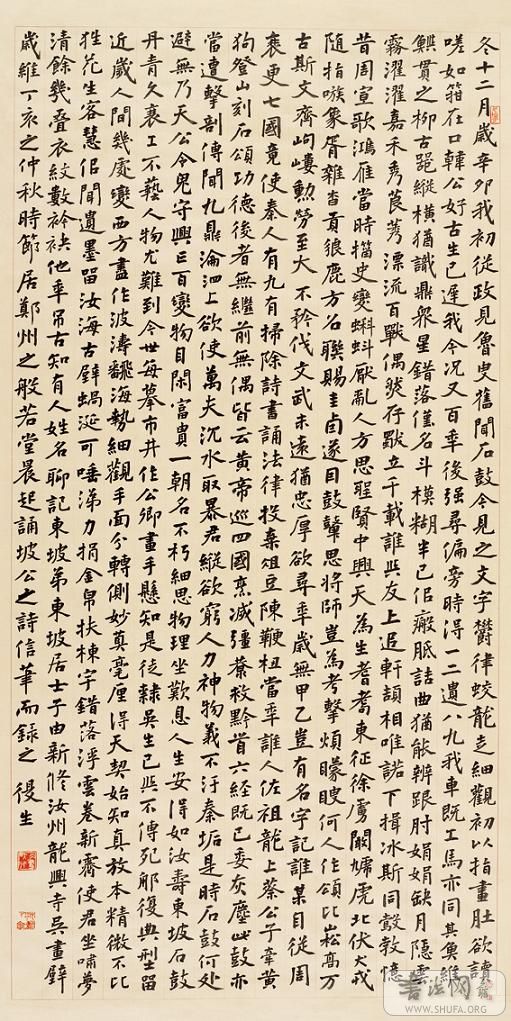 冬十二月歲辛卯我初從政見魯叟舊聞石鼓今見之文字鬱律蛟龍走細觀初以指畫肚欲讀
嗟如箝在口韓公好古生已遲我今況又百年後強尋偏旁時得一二遺八九我車既工馬亦同其魚維
鱮貫之柳古器縱橫猶識鼎眾星錯落僅名斗模糊半已似瘢胝詰曲猶能辨跟肘娟娟缺月隱雲
霧濯濯嘉禾秀莨莠漂流百戰偶然存獨立千載誰與友上追軒頡相唯諾下揖冰斯同鷇㝅憶
昔周宣歌鴻雁當時籀史變蝌蚪厭亂人方思聖賢中興天為生耆耇東征徐虜闞虓虎北伏犬戎
隨指嗾象胥雜沓貢狼鹿方召聯賜圭卣遂因鼓鼙思將帥豈為考擊煩矇瞍何人作頌比崧高萬
古斯文齊岣嶁勳勞至大不矜伐文武未遠猶忠厚欲尋年歲無甲乙豈有名字記誰某自從周
衰更七國竟使秦人有九有掃除詩書誦法律投棄俎豆陳鞭杻當年誰人佐祖龍上蔡公子牽黃
狗登山刻石頌功德後者無繼前無偶皆云黃帝巡四國烹滅彊暴救黔首六經既已委灰塵此鼓亦
當遭擊剖傳聞九鼎淪泗上欲使萬夫沉水取暴君縱欲窮人力神物義不汙秦垢是時石鼓何處
避無乃天公令鬼守興亡百變物自閑富貴一朝名不朽細思物理坐歎息人生安得如汝壽東坡石鼓
丹青久衰工不藝人物尤難到今世每摹市井作公卿畫手懸知是徒隸吳生已與不傳死那復典型留
近歲人間幾處變西方盡作波濤翻海勢細觀手面分轉側妙真毫厘得天契始知真放本精微不比
狂花生客慧似聞遺墨留汝海古壁蝸涎可垂涕力捐金帛扶棟宇錯落浮雲卷新霽使君坐嘯夢
清餘幾疊衣紋數衿袂他年弔古知有人姓名聊記東坡弟東坡居士子由新修汝州龍興寺吳畫壁
歲維丁亥之仲秋時節居鄭州之般若堂晨起誦坡公之詩信筆而錄之
書法网
WWW.SHUFA.ORG